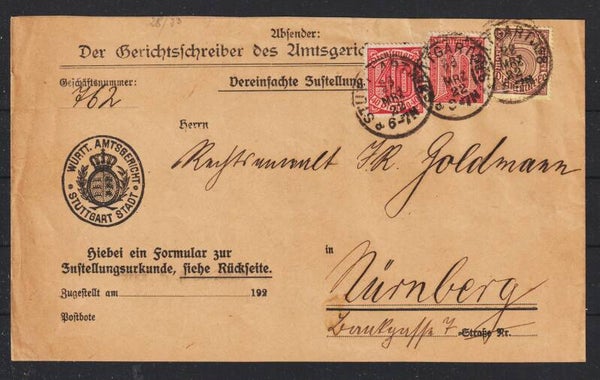 28/33
Absender:
Der Gerichtsschreiber des Amtsgeric
Geschäftsnummer:
762
Vereinfachte Zustellung.
Herrn
Rechtsanwalt J.R. Goldmann
WÜRTT. AMTSGERICHT
STUTTGART STADT
Hiebei ein Formular zur
Zustellungsurkunde, siehe Rückseite.
in
Nürnberg
Zugestellt am 192
Postbote
Bankgasse 7 Straße Nr.
STUTTGART
MRZ
22